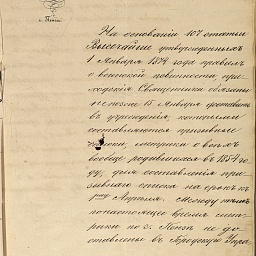 г. Пенза.
На основаніи 107 статьи
Высочайше утвержденныхъ
1 Января 1874 года правилъ
о воинской повинности, при-
ходскіе Священники обязаны
не позже 15 Января доставить
въ учрежденія, которыми
составляются призывные
списки, метрики о всѣхъ
вообще родившихся въ 1854 го-
ду, для составленія при-
зывнаго списка на срокъ къ
1му Апрѣля. Между тѣмъ
по настоящее время мет-
рики по г. Пензѣ не до-
ставлены въ Городскую Упра